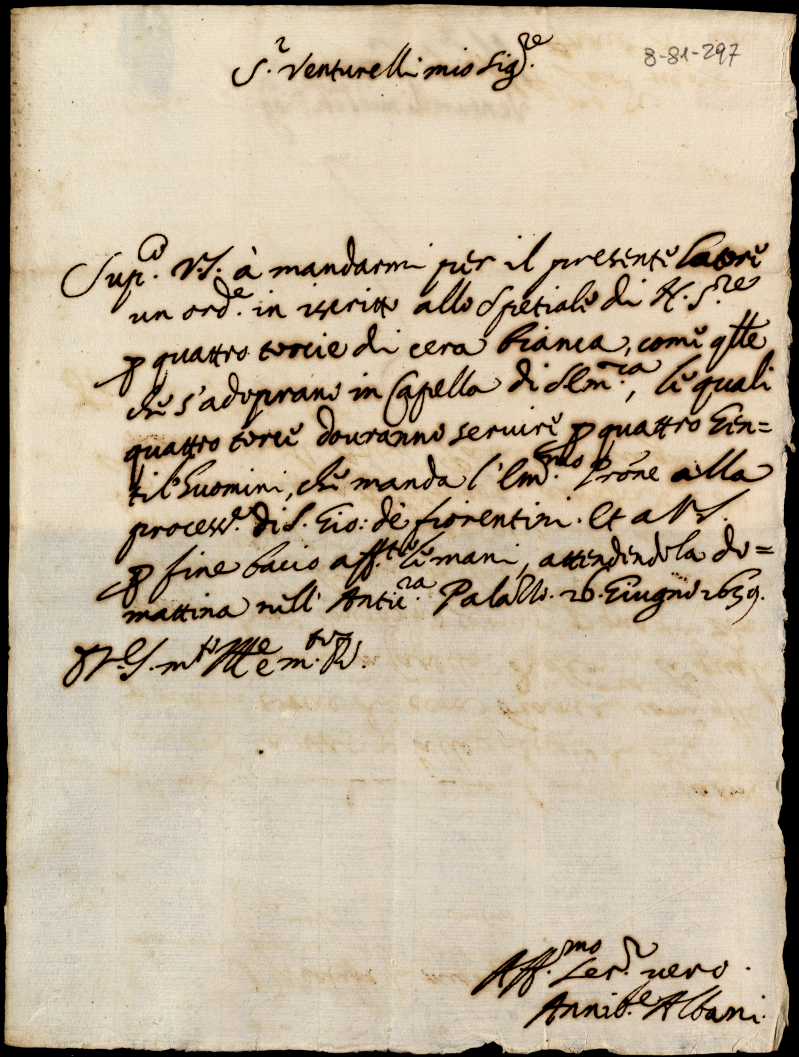 8-81-297
S.r Venturelli mio Sig.re
Sup.co V.S. à mandarmi per il presente latore
un ord.e in iscritto allo Spetiale di N. S.re
p quattro torcie di cera bianca, come q.lle
che s'adoprano in Capella di S. Em.za, le quali
quattro torcie douranno seruire p quattro Gen=
til'huomini, che manda l'Em.mo Prōne alla
process.e di S. Gio: de fiorentini. Et a V.S.
p fine bacio aff.te le mani, attendendola do=
mattina nell' Antic.ra Palazzo. 26. Giugno 1659.
D V.S. m.to Ill.e e m.to R.
Aff.mo Ser.r vero.
Annib.e Albani.